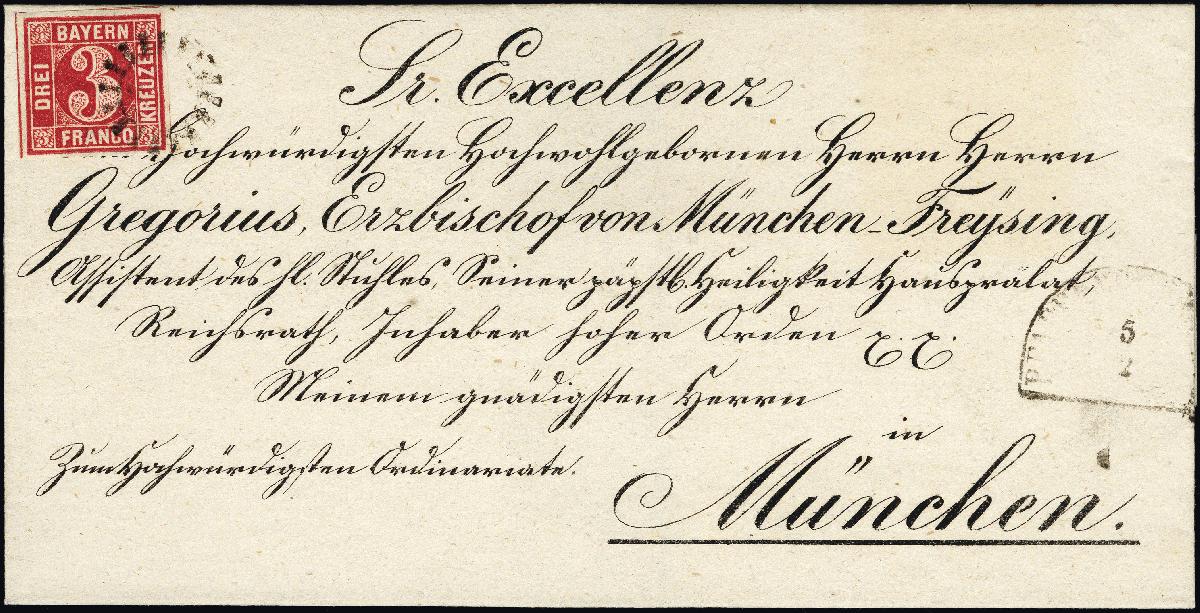 BAYERN
DREI
3
KREUZER
FRANCO
Sr. Excellenz
Hochwürdigsten Hochwohlgebornen Herrn Herrn
Gregorius, Erzbischof von München-Freÿsing,
Assistent des hl. Stuhles, Seiner päpstl. Heiligkeit Hausprälat,
Reichsrath, Inhaber hoher Orden
5
2
Meinem gnädigsten Herrn
in
Zum Hochwürdigsten Ordinariate.
München.